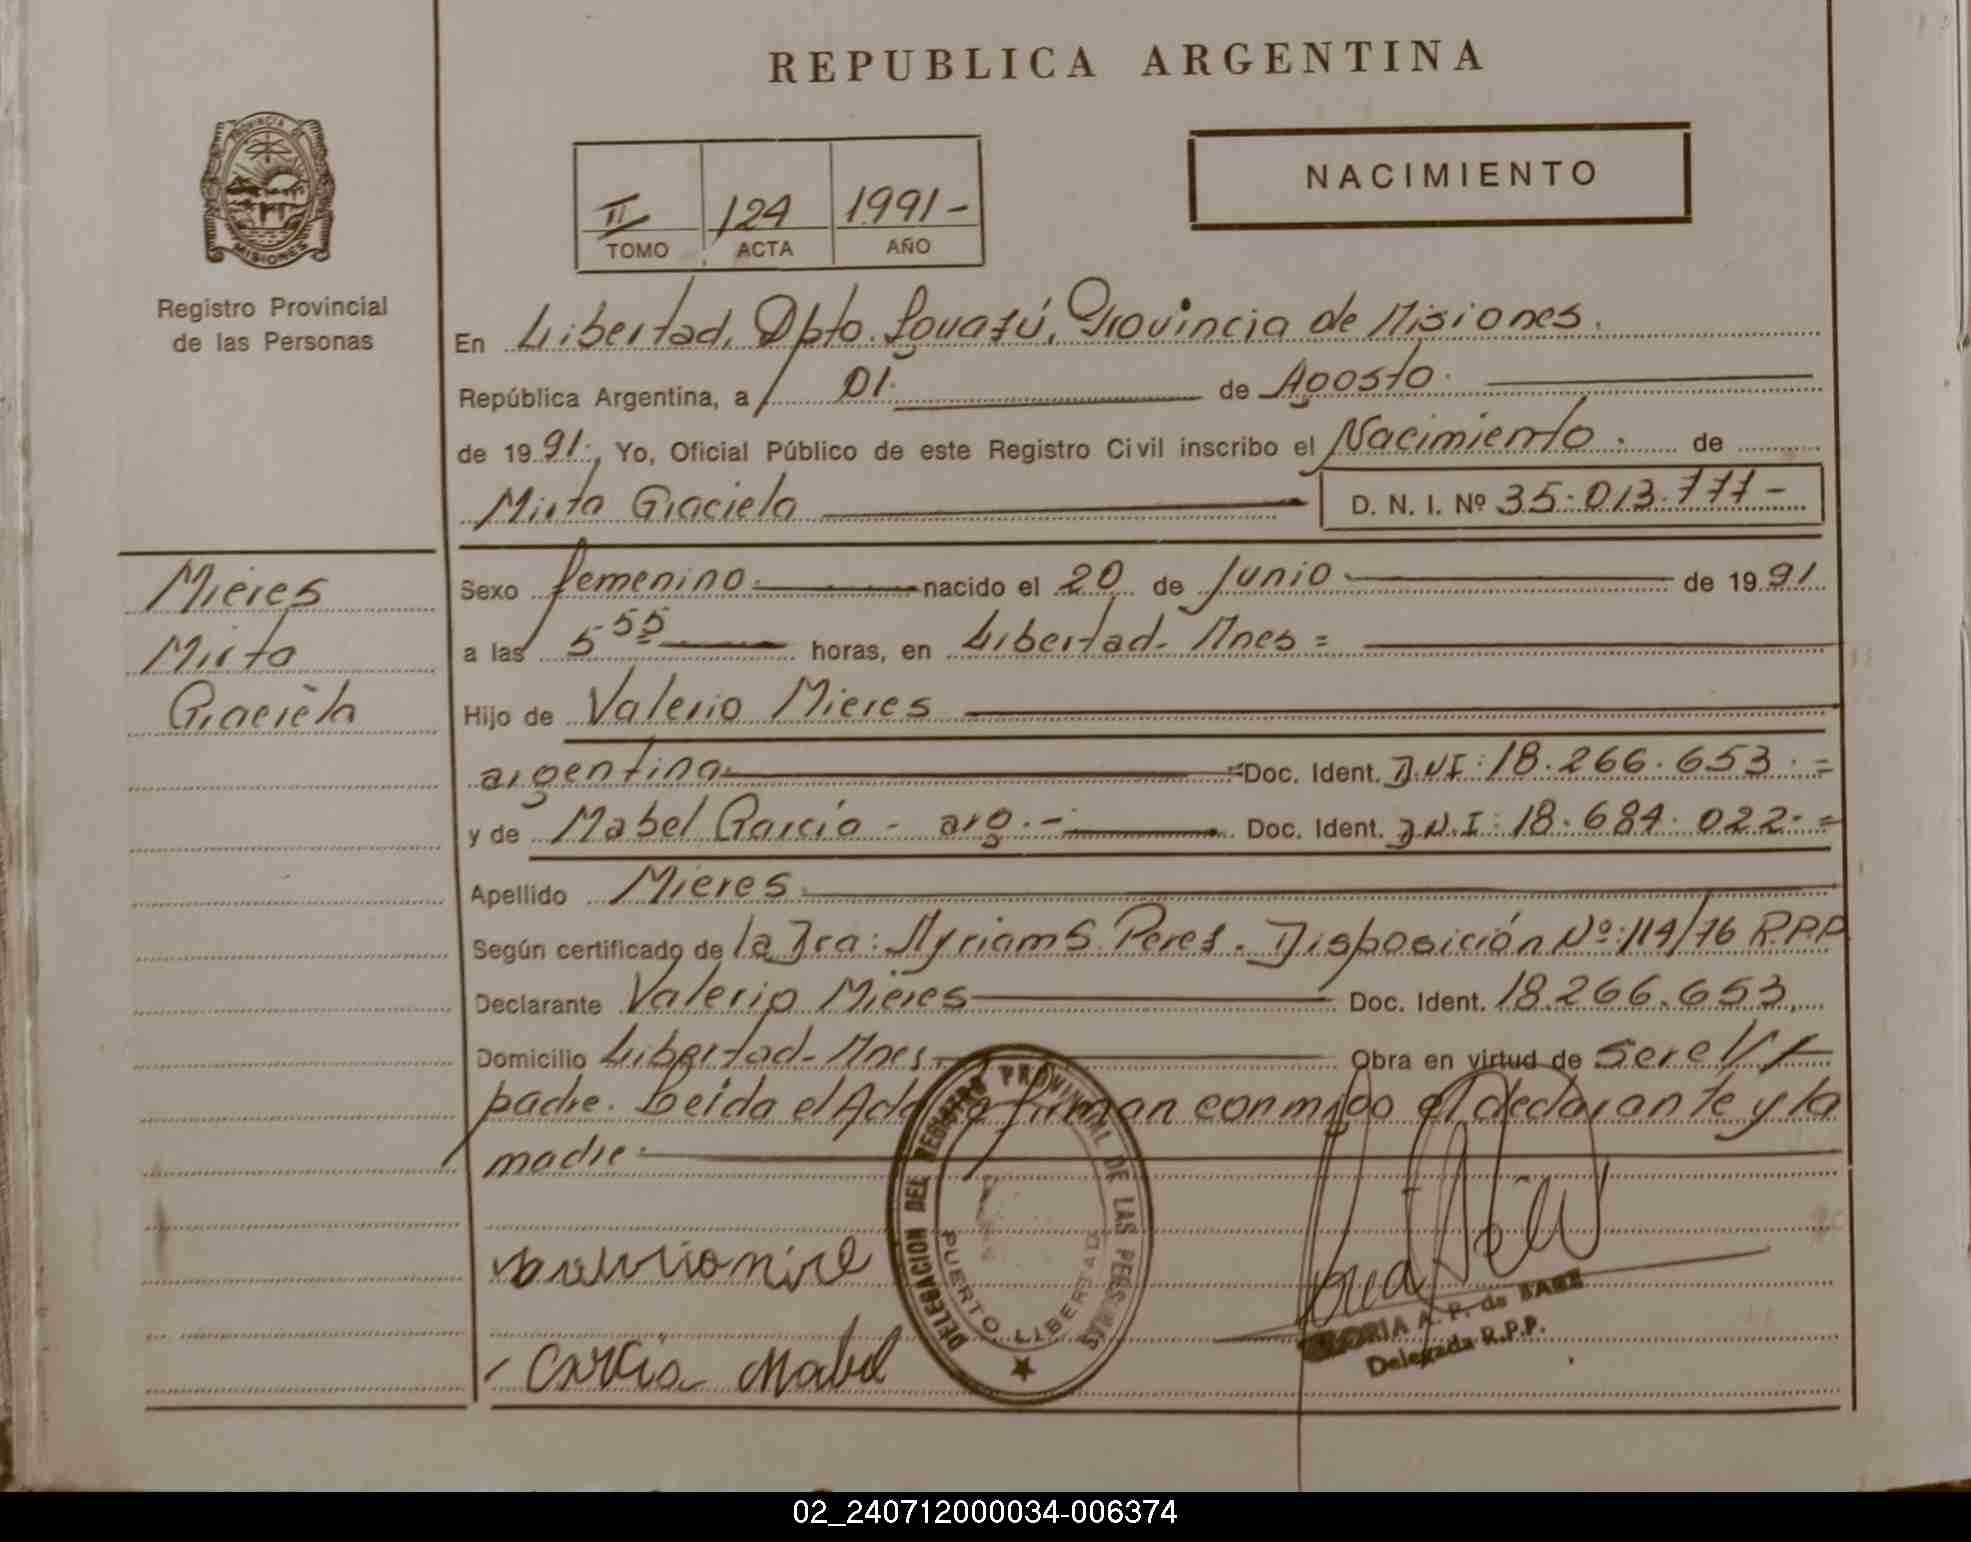 REPUBLICA ARGENTINA
PROVINCIA DE
MISIONES
Registro Provincial
de las Personas
NACIMIENTO
II 124 1991-
TOMO ACTA AÑO
En Libertad, Dpto. Iguazú, Provincia de Misiones.
República Argentina, a 01. de Agosto.
de 1991. Yo, Oficial Público de este Registro Civil inscribo el Nacimiento. de
Mirta Graciela D. N. I. Nº 35.013.777-
Mieres
Mirta
Graciela
Sexo femenino. nacido el 20 de Junio de 1991
a las 5 55 horas, en Libertad- Mnes=
Hijo de Valerio Mieres
argentina. Doc. Ident. D.N.I: 18.266.653.=
y de Mabel Garcia - arg.- Doc. Ident. D.N.I: 18.684.022.=
Apellido Mieres.
Según certificado de la Dra: Myriam S. Peres. Disposición Nº:114/76 R.P.P
Declarante Valerio Mieres Doc. Ident. 18.266.653.
Domicilio Libertad-Mnes. Obra en virtud de ser el
padre. Leida el Acta la firman conmigo el declarante y la
madre.
DELEGACION DEL REGISTRO PROVINCIAL DE LAS PERSONAS
PUERTO LIBERTAD
Garcia Mabel
A. P. de
Delegada R.P.P.
02_240712000034-006374